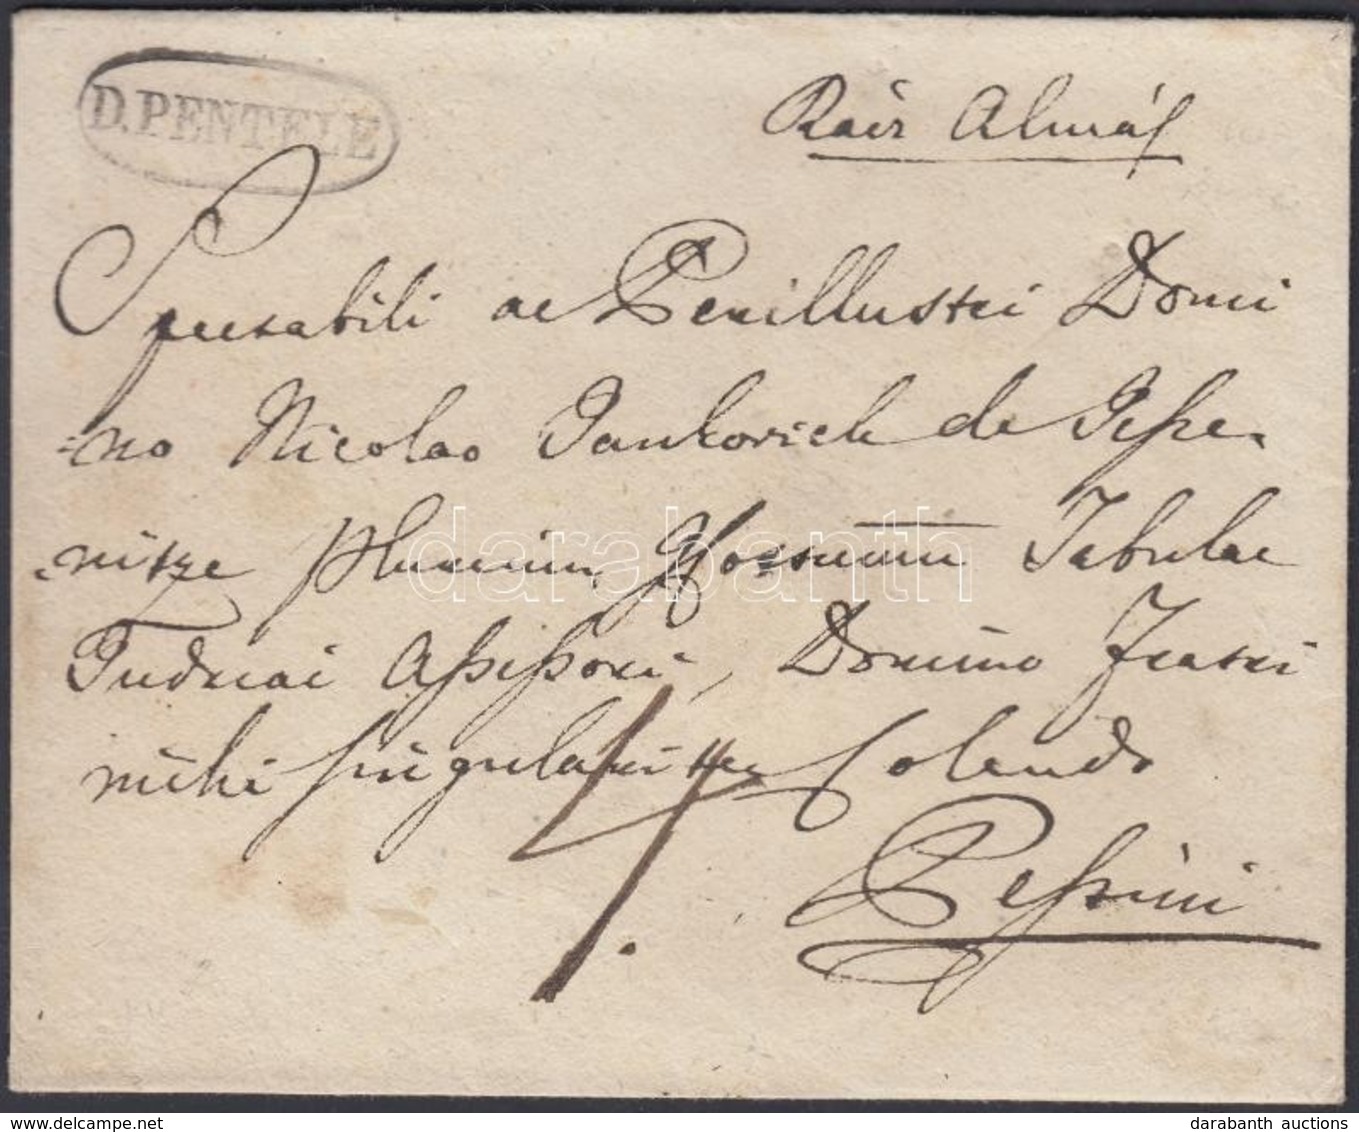 D. PENTELE
Rácz Almás
Spectabili ac Perillustri Domi
=no Nicolao Jankovich de Jesze=
=nitze plurium Ill Cottuum Tabulae
Judriai Assessori, Domino Fratri
mihi singulariter Colendo
4.
Pessini
darabanth
darabanth auctions